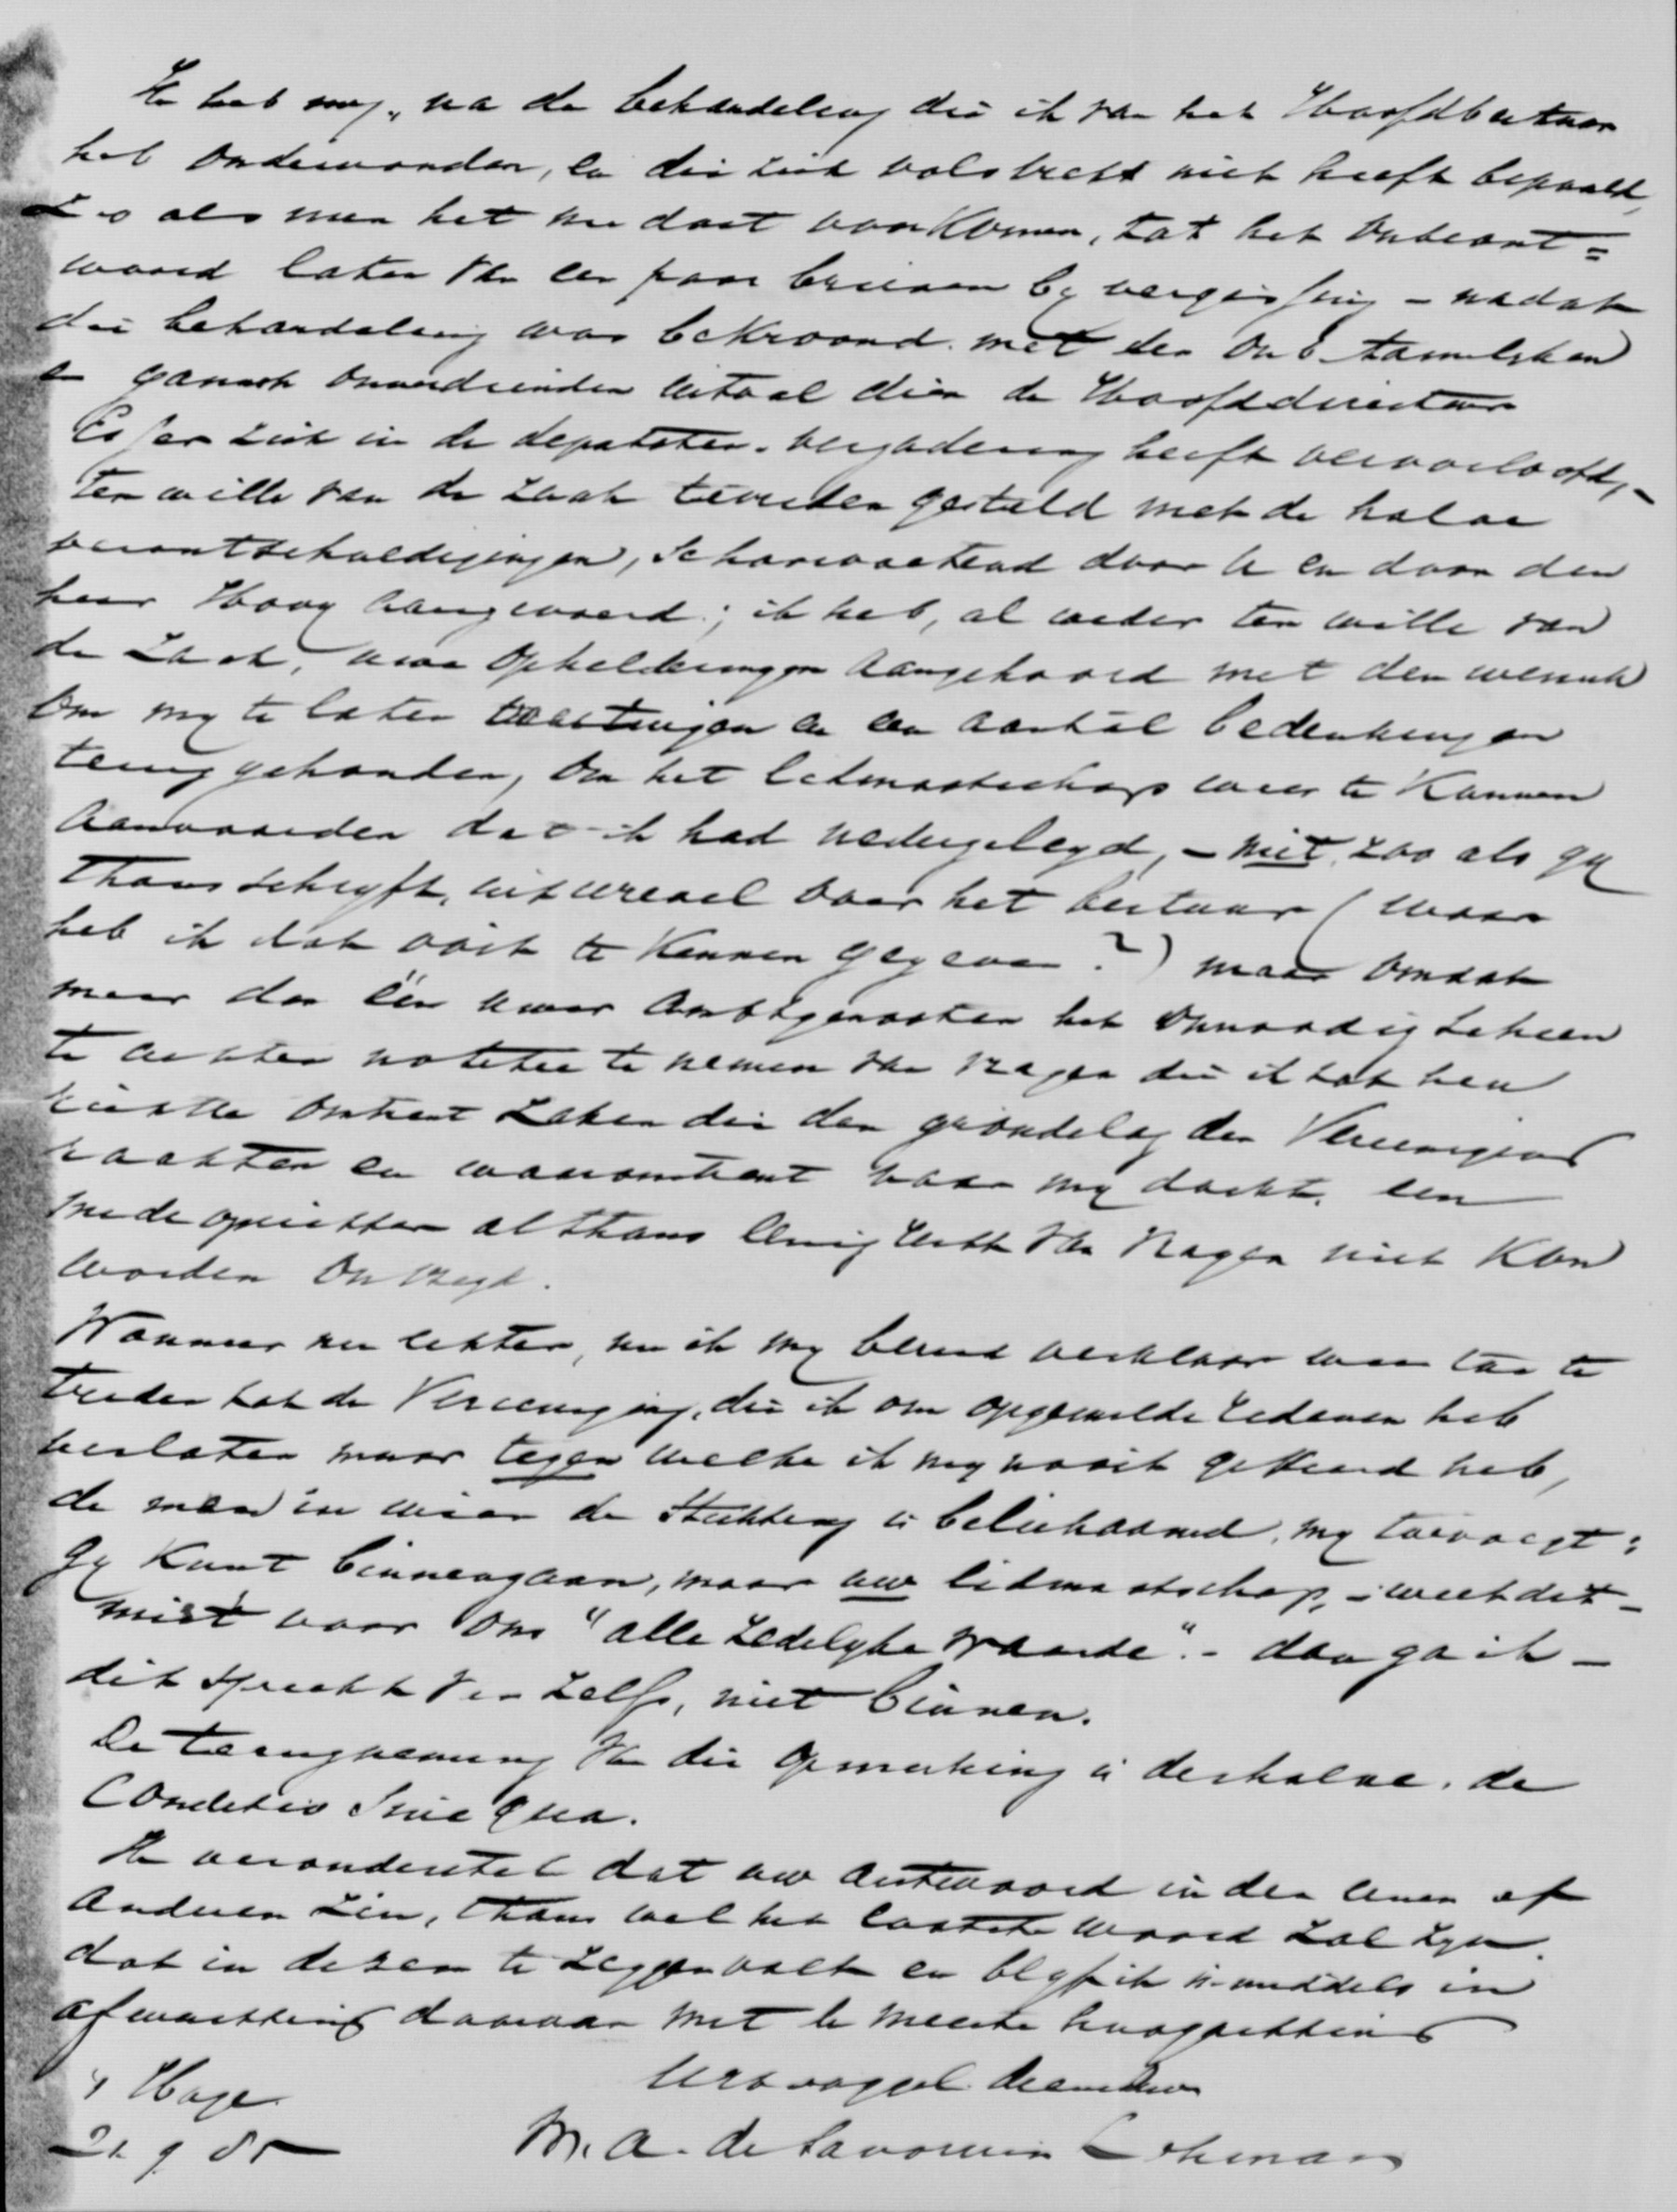 Ik heb my, na de behandeling die ik van het Hoofdbestuur
heb ondervonden, en die zich volstrekt niet heeft bepaald,
zoo als men het nu doet voorkomen, tot het onbeant=
woord laten van een paar brieven by vergissing – nadat
die behandeling was bekroond met den onbetamelyken
en gansch onverdienden uitval dien de Hoofddirecteur
Esser zich in de deputaten-vergadering heeft veroorloofd, –
ter wille van de zaak tevreden gesteld met de halve
verontschuldigingen, schoorvoetend door U en door den
heer Hovy aangevoerd; ik heb, al weder ten wille van
de zaak, uwe ophelderingen aangehoord met den wensch
om my te laten overtuigen en een aantal bedenkingen
teruggehouden, om het lidmaatschap weer te kunnen
aanvaarden dat ik had nedergelegd, – niet, zoo als gy
thans schryft, uit wrevel voor het bestuur (waar
heb ik dat ooit te kennen gegeven?) maar omdat
meer dan één uwer ambtgenooten het onnoodig scheen
te achten notitie te nemen van vragen die ik tot hen
richtte omtrent zaken die den grondslag der Vereeniging
raakten en waaromtrent naar my dacht, een
medeoprichter althans eenig recht van vragen niet kon
worden ontzegd.
Wanneer nu echter, nu ik my bereid verklaar weer toe te
treden tot de Vereeniging, die ik om opgemelde redenen heb
verlaten maar tegen welke ik my nooit gekeerd heb,
de man in wien de Stichting is belichaamd, my toevoegt:
gy kunt binnengaan, maar uw lidmaatschap, – weet dit –
mist voor ons "alle zedelyke waarde" – dan ga ik –
dit spreekt van zelf, niet binnen.
De terugneming van die opmerking is derhalve de
Conditio Sine qua.
Ik veronderstel dat uw antwoord in den eenen of
anderen zin, thans wel het laatste woord zal zyn.
dat in dezen te zeggen valt en blyf ik inmiddels in
afwachting daarvan met de meeste hoogachting
Uw dienaar
's Hage
21 9 85
M. A. de Savornin Lohman